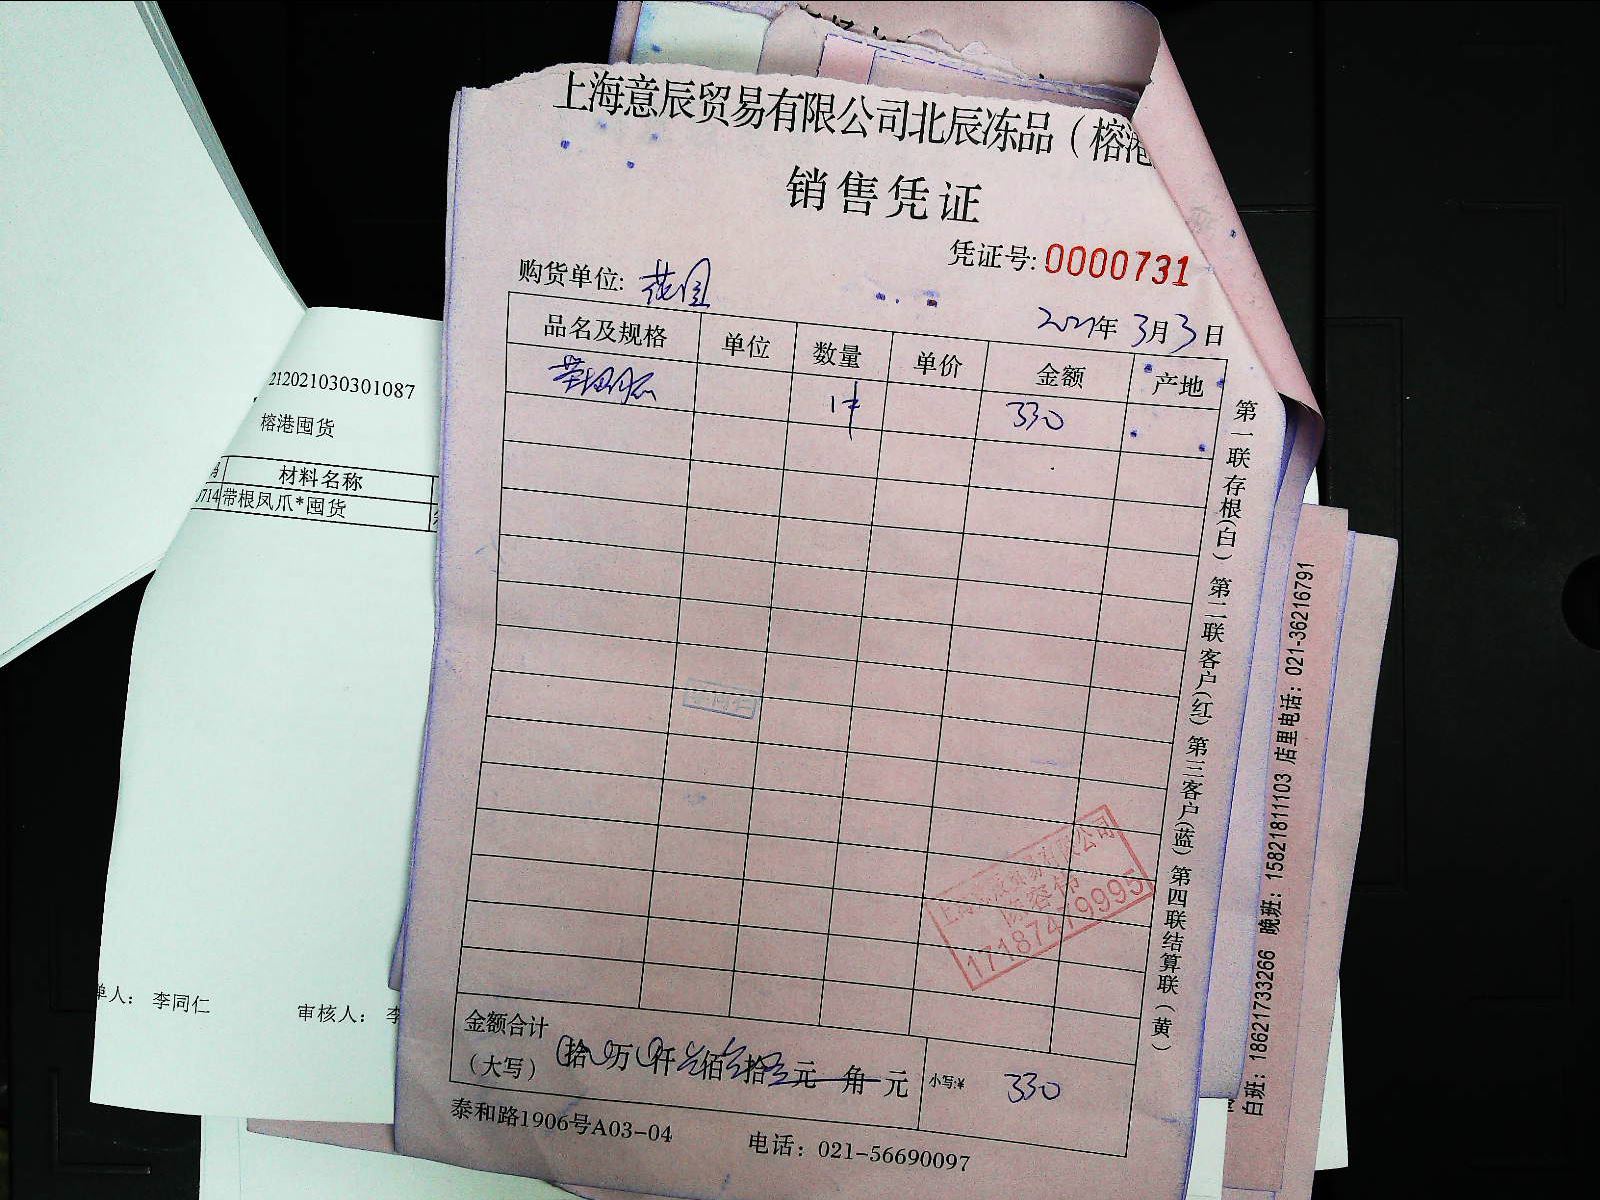 上海意辰贸易有限公司北辰冻品（榕港
销售凭证
凭证号: 0000731
购货单位: 花园
2021年 3月 3日
品名及规格 单位 数量 单价 金额 产地
1件 330
金额合计
（大写） 拾 万 仟 佰 拾 元 角 元 小写:¥ 330
泰和路1906号A03-04 电话：021-56690097
第一联存根(白) 第二联客户(红) 第三客户(蓝) 第四联结算联(黄)
上海意辰贸易有限公司
陈容伟
17187419995
212021030301087
榕港囤货
材料名称
0714 带根凤爪*囤货
单人： 李同仁 审核人： 李
白班：18621733266 晚班：15821811103 店里电话：021-36216791